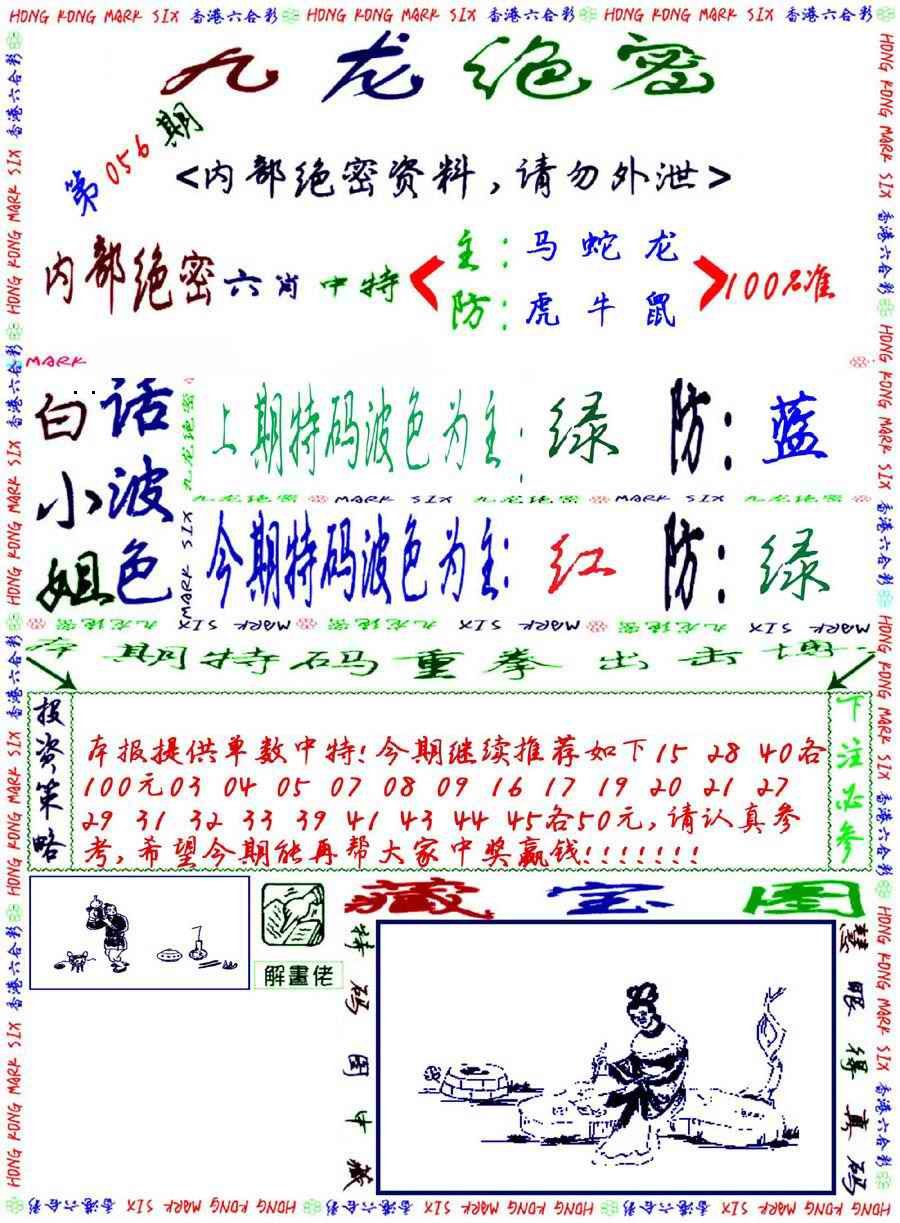 HONG KONG MARK SIX 香港六合彩 HONG KONG MARK SIX 香港六合彩 HONG KONG MARK SIX 香港六合彩
九龙绝密
第056期
<内部绝密资料,请勿外泄>
内部绝密六肖中特
主:马蛇龙
防:虎牛鼠
100%准
MARK
白话小姐波色
九龙绝密
MARK SIX
上期特码波色为主:绿 防:蓝
九龙绝密 MARK SIX 九龙绝密 MARK SIX 九龙绝密
今期特码波色为主:红 防:绿
九龙绝密 MARK SIX 九龙绝密 MARK SIX 九龙绝密 MARK SIX
本期特码重拳出击
投资策略
本报提供单数中特!今期继续推荐如下15 28 40各
100元03 04 05 07 08 09 16 17 19 20 21 27
29 31 32 33 39 41 43 44 45各50元,请认真参
考,希望今期能再帮大家中奖赢钱!!!!!!!
下注必参
解畫佬
藏宝图
特码图中藏
慧眼得真码
HONG KONG MARK SIX 香港六合彩 HONG KONG MARK SIX 香港六合彩 HONG KONG MARK SIX 香港六合彩